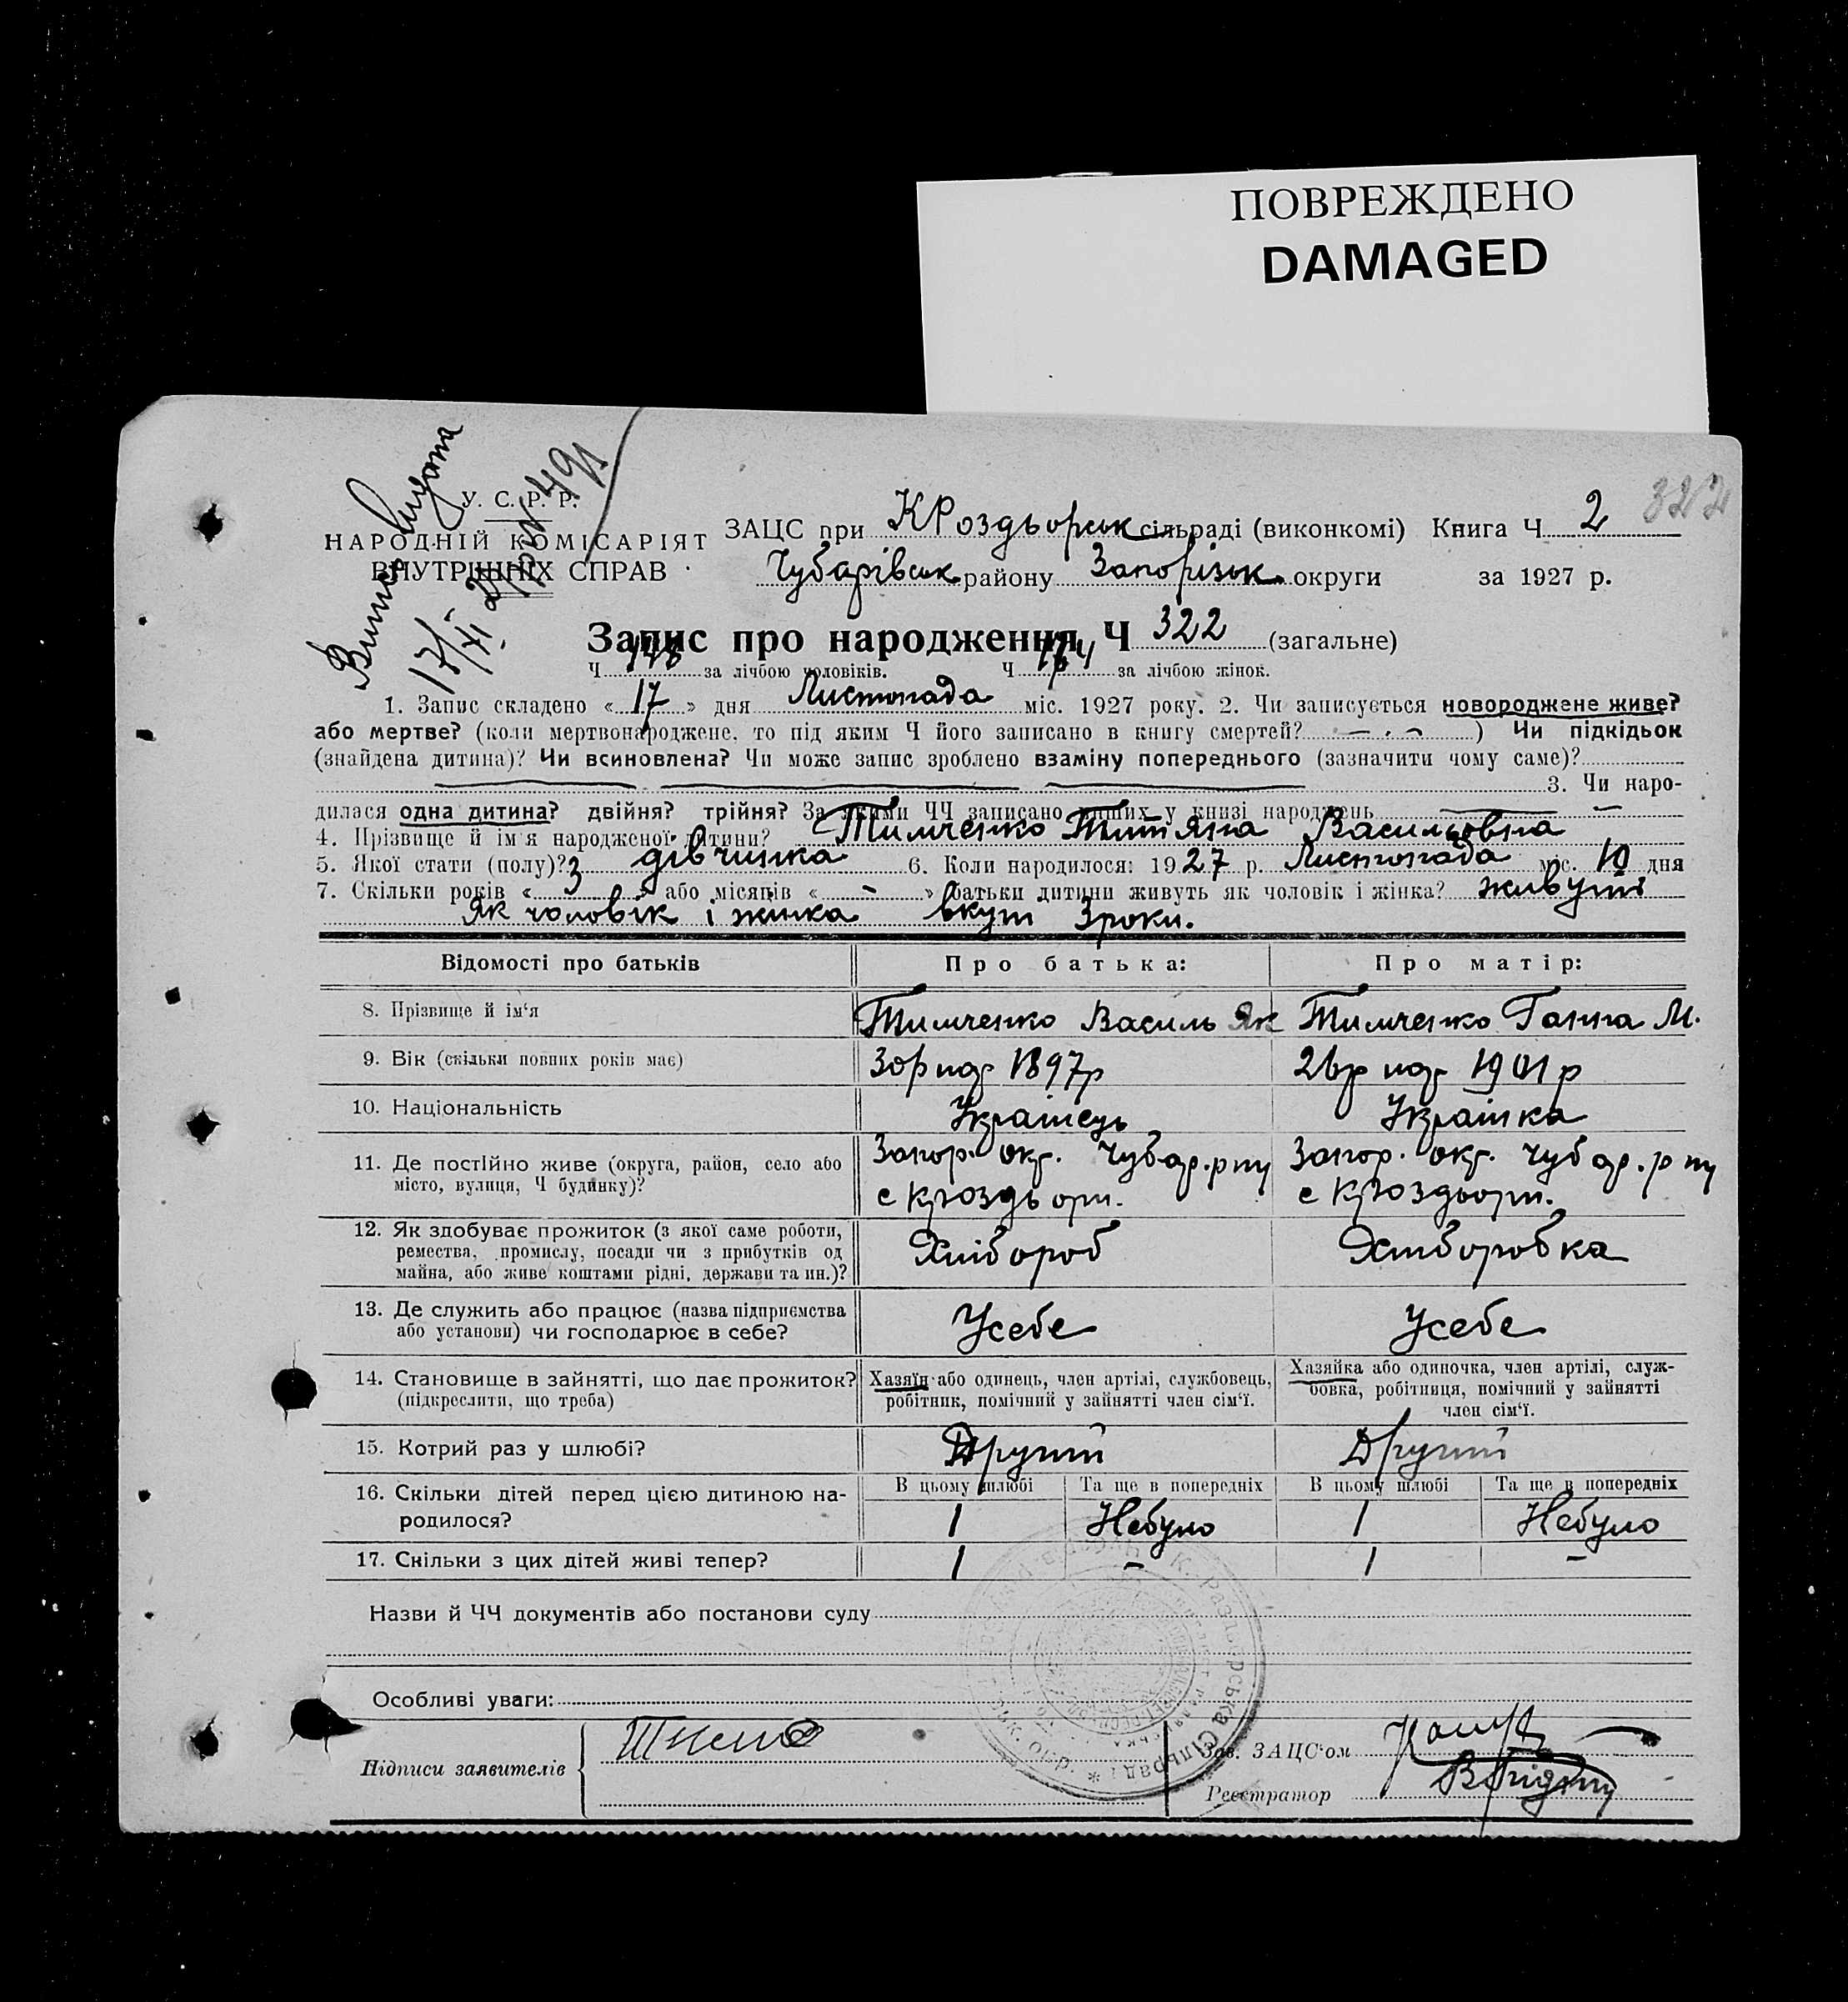 ПОВРЕЖДЕНО
DAMAGED
322
Випись видана
17/XI 27р № 491
У. С. Р. Р.
НАРОДНІЙ КОМІСАРІЯТ
ВНУТРІШНІХ СПРАВ
ЗАЦС при КРоздорськ сільраді (виконкомі) Книга Ч 2
Чубарівськ району Запорізьк округи за 1927 р.
Запис про народження Ч 322 (загальне)
Ч 148 за лічбою чоловіків. Ч 174 за лічбою жінок.
1. Запис складено « 17 » дня Листопада міс. 1927 року. 2. Чи записується новороджене живе?
або мертве? (коли мертвонароджене, то під яким Ч його записано в книгу смертей? — · — ) Чи підкідьок
(знайдена дитина)? Чи всиновлена? Чи може запис зроблено взаміну попереднього (зазначити чому саме)?
3. Чи наро-
дилася одна дитина? двійня? трійня? За якими ЧЧ записано інших у книзі народжень —
4. Прізвище й ім'я народженої дитини? Тимченко Титяна Васильовна
5. Якої стати (полу)? дівчинка 6. Коли народилося: 1927 р. Листопада міс. 10 дня
7. Скільки років « 3 » або місяців « - » батьки дитини живуть як чоловік і жінка? живуть
Як чоловік і жинка вкупі 3 роки.
Відомості про батьків Про батька: Про матір:
8. Прізвище й ім'я Тимченко Василь Як Тимченко Ганна М.
9. Вік (скільки повних років має) 30р нар 1897р 26р нар 1901р
10. Національність Українець Українка
11. Де постійно живе (округа, район, село або Запор. окр. Чубар. р ну Запор. окр. Чубар. р ну
місто, вулиця, Ч будинку)? с Кроздьори. с Кроздьори.
12. Як здобуває прожиток (з якої саме роботи,
ремества, промислу, посади чи з прибутків од Хлібороб Хлиборобка
майна, або живе коштами рідні, держави та ин.)?
13. Де служить або працює (назва підприємства
або установи) чи господарює в себе? Усебе Усебе
14. Становище в зайнятті, що дає прожиток? Хазяїн або одинець, член артілі, службовець, Хазяйка або одиночка, член артілі, служ-
(підкреслити, що треба) робітник, помічний у зайнятті член сім'ї. бовка, робітниця, помічний у зайнятті
член сім'ї.
15. Котрий раз у шлюбі? Другий Другий
16. Скільки дітей перед цією дитиною на- В цьому шлюбі Та ще в попередніх В цьому шлюбі Та ще в попередніх
родилося? 1 Небуло 1 Небуло
17. Скільки з цих дітей живі тепер? 1 - 1 -
Назви й ЧЧ документів або постанови суду
Особливі уваги:
Підписи заявителів Зав. ЗАЦС'ом
Реєстратор